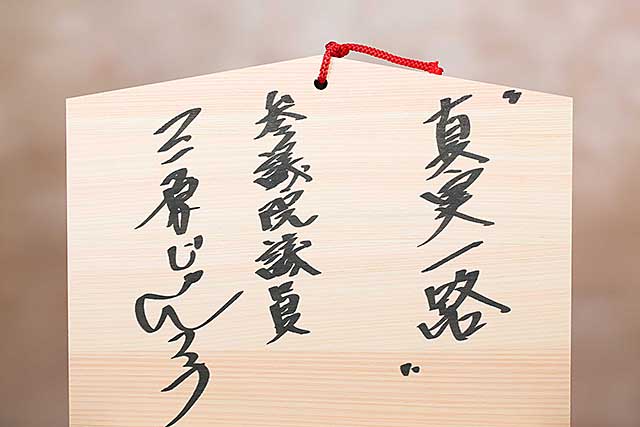 〝真実一路〟
参議院議員
三原じゅん子